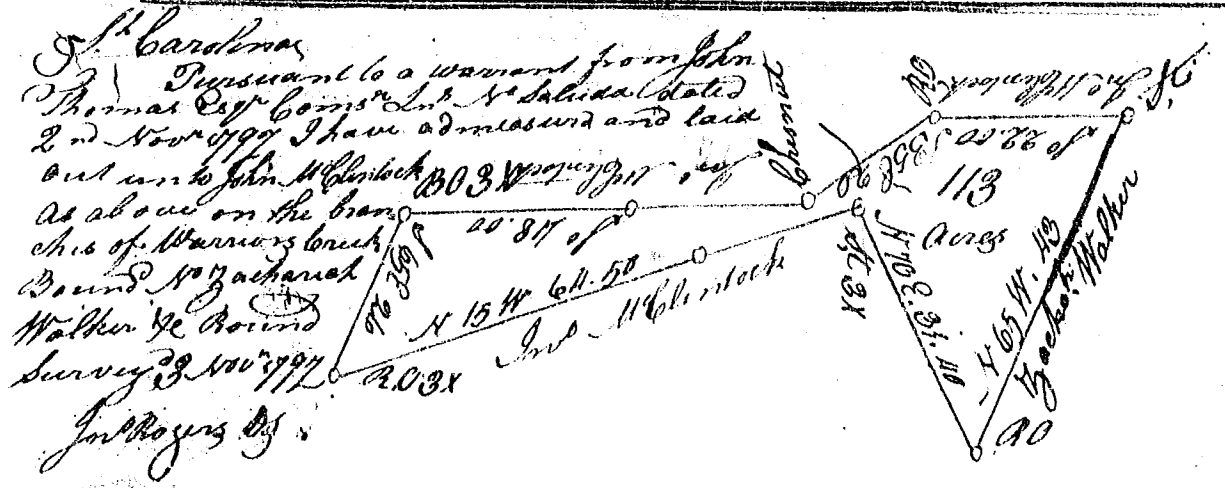 So Carolina
Pursuant to a warrant from John
Thomas Esqr Comsr Lns No Saluda dated
2nd Novr 1797 I have admeasurd and laid
out unto John McClintock
As above on the bran
ches of Warriors Creek
Bound No Zachariah
Walker &c Round
Surveyd 3 Novr 1797
Jno Rogers DS
BO3X
S65E 26
So 48.00
Jno McClintock
N 15 W 64.50
Jno McClintock
RO3X
S35E
So 22.00
Jno McClintock
113
Acres
St.3X
N70E.34.40
N65W.43
Zachah Walker
RO